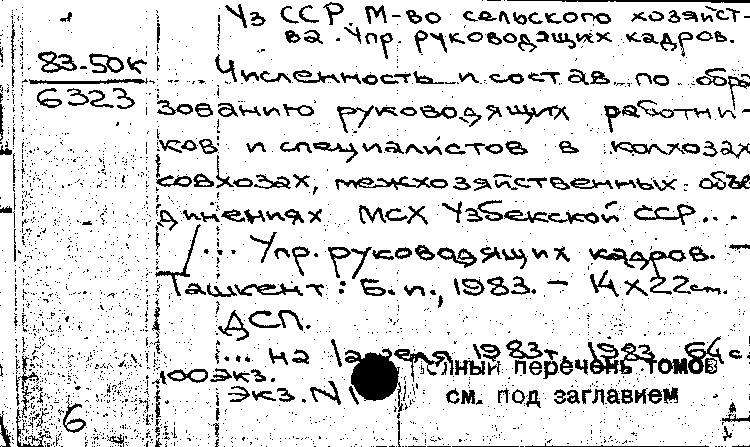 Уз ССР. М-во сельского хозяйст-
ва. Упр. руководящих кадров.
83-50к
6323
Численность и состав по обра
зованию руководящих работни-
ков и специалистов в колхозах
совхозах, межхозяйственных объе
динениях МСХ Узбекской ССР...
... Упр. руководящих кадров. -
Ташкент: Б.и., 1983. - 14х22см.
ДСП.
... на 1 апреля 1983г. 1983. 64 с.
100экз.
Экз. N 1
полный перечень томов
см. под заглавием
6